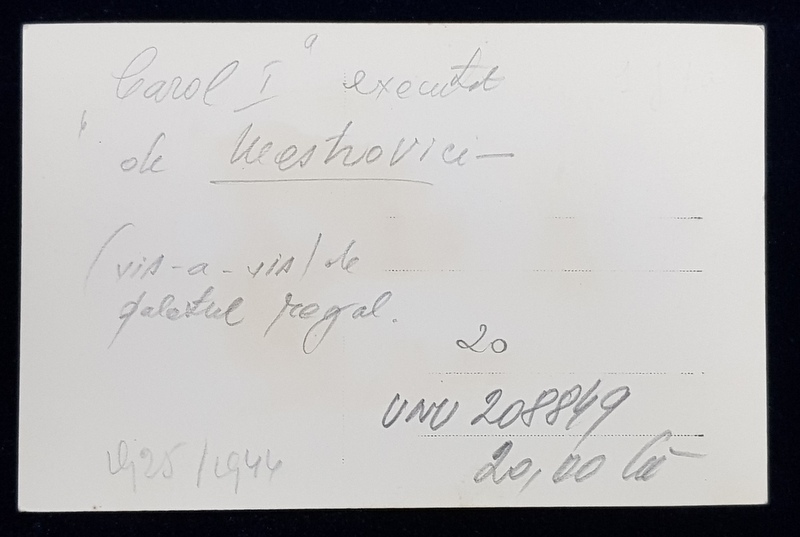 Carol I executat
de Mestrovici
(vis-a-vis) de
palatul regal.
20
UNU 208849
20,00 lei
25/1944